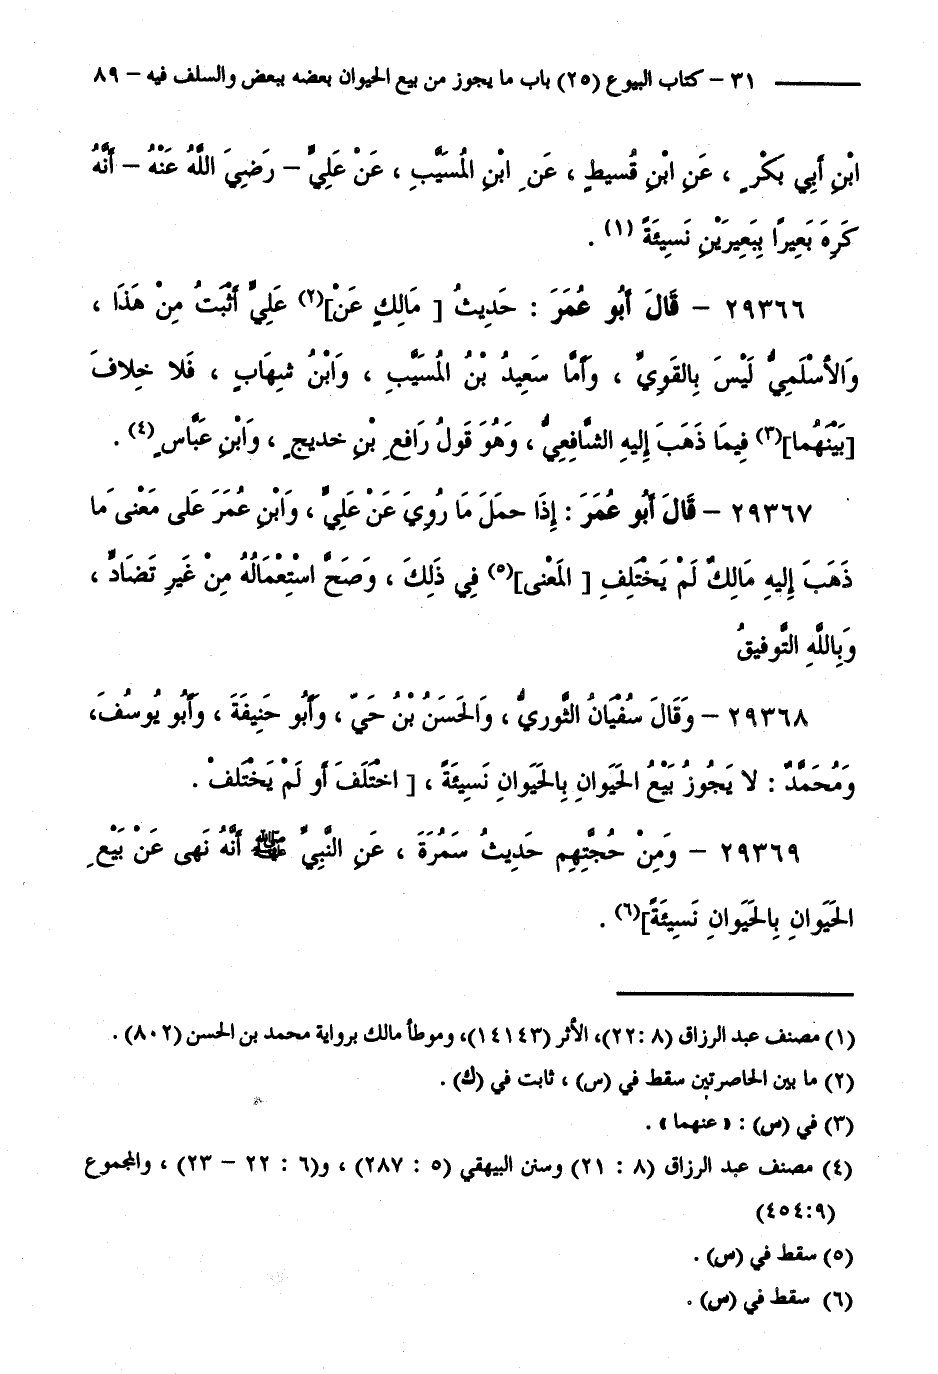 ٣١ – كتاب البيوع (٢٥) باب ما يجوز من بيع الحيوان بعضه ببعض والسلف فيه – ٨٩
ابْنِ أَبِي بَكْرٍ ، عَنِ ابْنِ قُسيطٍ ، عَنِ ابْنِ المُسَيَّبِ ، عَنْ عَلِيٍّ – رَضِيَ اللَّهُ عَنْهُ – أَنَّهُ
كَرِهَ بَعِيرًا بِبَعِيرَيْنِ نَسِيئَةً (١) .
٢٩٣٦٦ – قَالَ أَبُو عُمَرَ : حَدِيثُ [ مَالِكٍ عَنْ](٢) عَلِيٍّ أَثْبَتُ مِنْ هَذَا ،
وَالأسْلَمِيُّ لَيْسَ بِالقَوِيِّ ، وَأَمَّا سَعِيدُ بْنُ المُسَيَّبِ ، وَابْنُ شِهَابٍ ، فَلا خِلافَ
[بَيْنَهُما](٣) فِيمَا ذَهَبَ إِليهِ الشَّافِعِيُّ ، وَهُوَ قَولُ رَافِعِ بْنِ خديجٍ ، وَابْنِ عَبَّاسٍ (٤) .
٢٩٣٦٧ – قَالَ أَبُو عُمَرَ : إِذَا حملَ مَا رُوِيَ عَنْ عَلِيٍّ ، وَابْنِ عُمَرَ عَلى مَعْنى مَا
ذَهَبَ إِليهِ مَالِكٌ لَمْ يَخْتَلِفِ [ المَعْنى](٥) فِي ذَلِكَ ، وَصَحَّ اسْتِعْمَالُهُ مِنْ غَيرِ تَضَادٍّ ،
وَبِاللَّهِ التَّوفيقُ
٢٩٣٦٨ – وَقَالَ سُفْيَانُ الثَّوريُّ ، وَالحَسَنُ بْنُ حَيّ ، وَأَبُو حَنِيفَةَ ، وَأَبُو يُوسُفَ،
وَمُحَمَّدٌ : لا يَجُوزُ بَيْعُ الحَيَوانِ بِالحَيَوانِ نَسِيئَةً ، [ اخْتَلَفَ أَو لَمْ يَخْتَلفْ .
٢٩٣٦٩ – وَمِنْ حُجَّتِهِم حَدِيثُ سَمُرَةَ ، عَنِ النَّبِيِّ ﷺ أَنَّهُ نَهى عَنْ بَيْعِ
الحَيَوانِ بِالحَيَوانِ نَسِيئَةً](٦) .
(١) مصنف عبد الرزاق (٨ :٢٢)، الأثر (١٤١٤٣)، وموطأ مالك برواية محمد بن الحسن (٨٠٢) .
(٢) ما بين الحاصرتين سقط في (س) ، ثابت في (ك) .
(٣) في (س) : « عنهما » .
(٤) مصنف عبد الرزاق (٨ : ٢١) وسنن البيهقي (٥ : ٢٨٧) ، و(٦ : ٢٢ – ٢٣) ، والمجموع
(٩:٤٥٤)
(٥) سقط في (س) .
(٦) سقط في (س) .